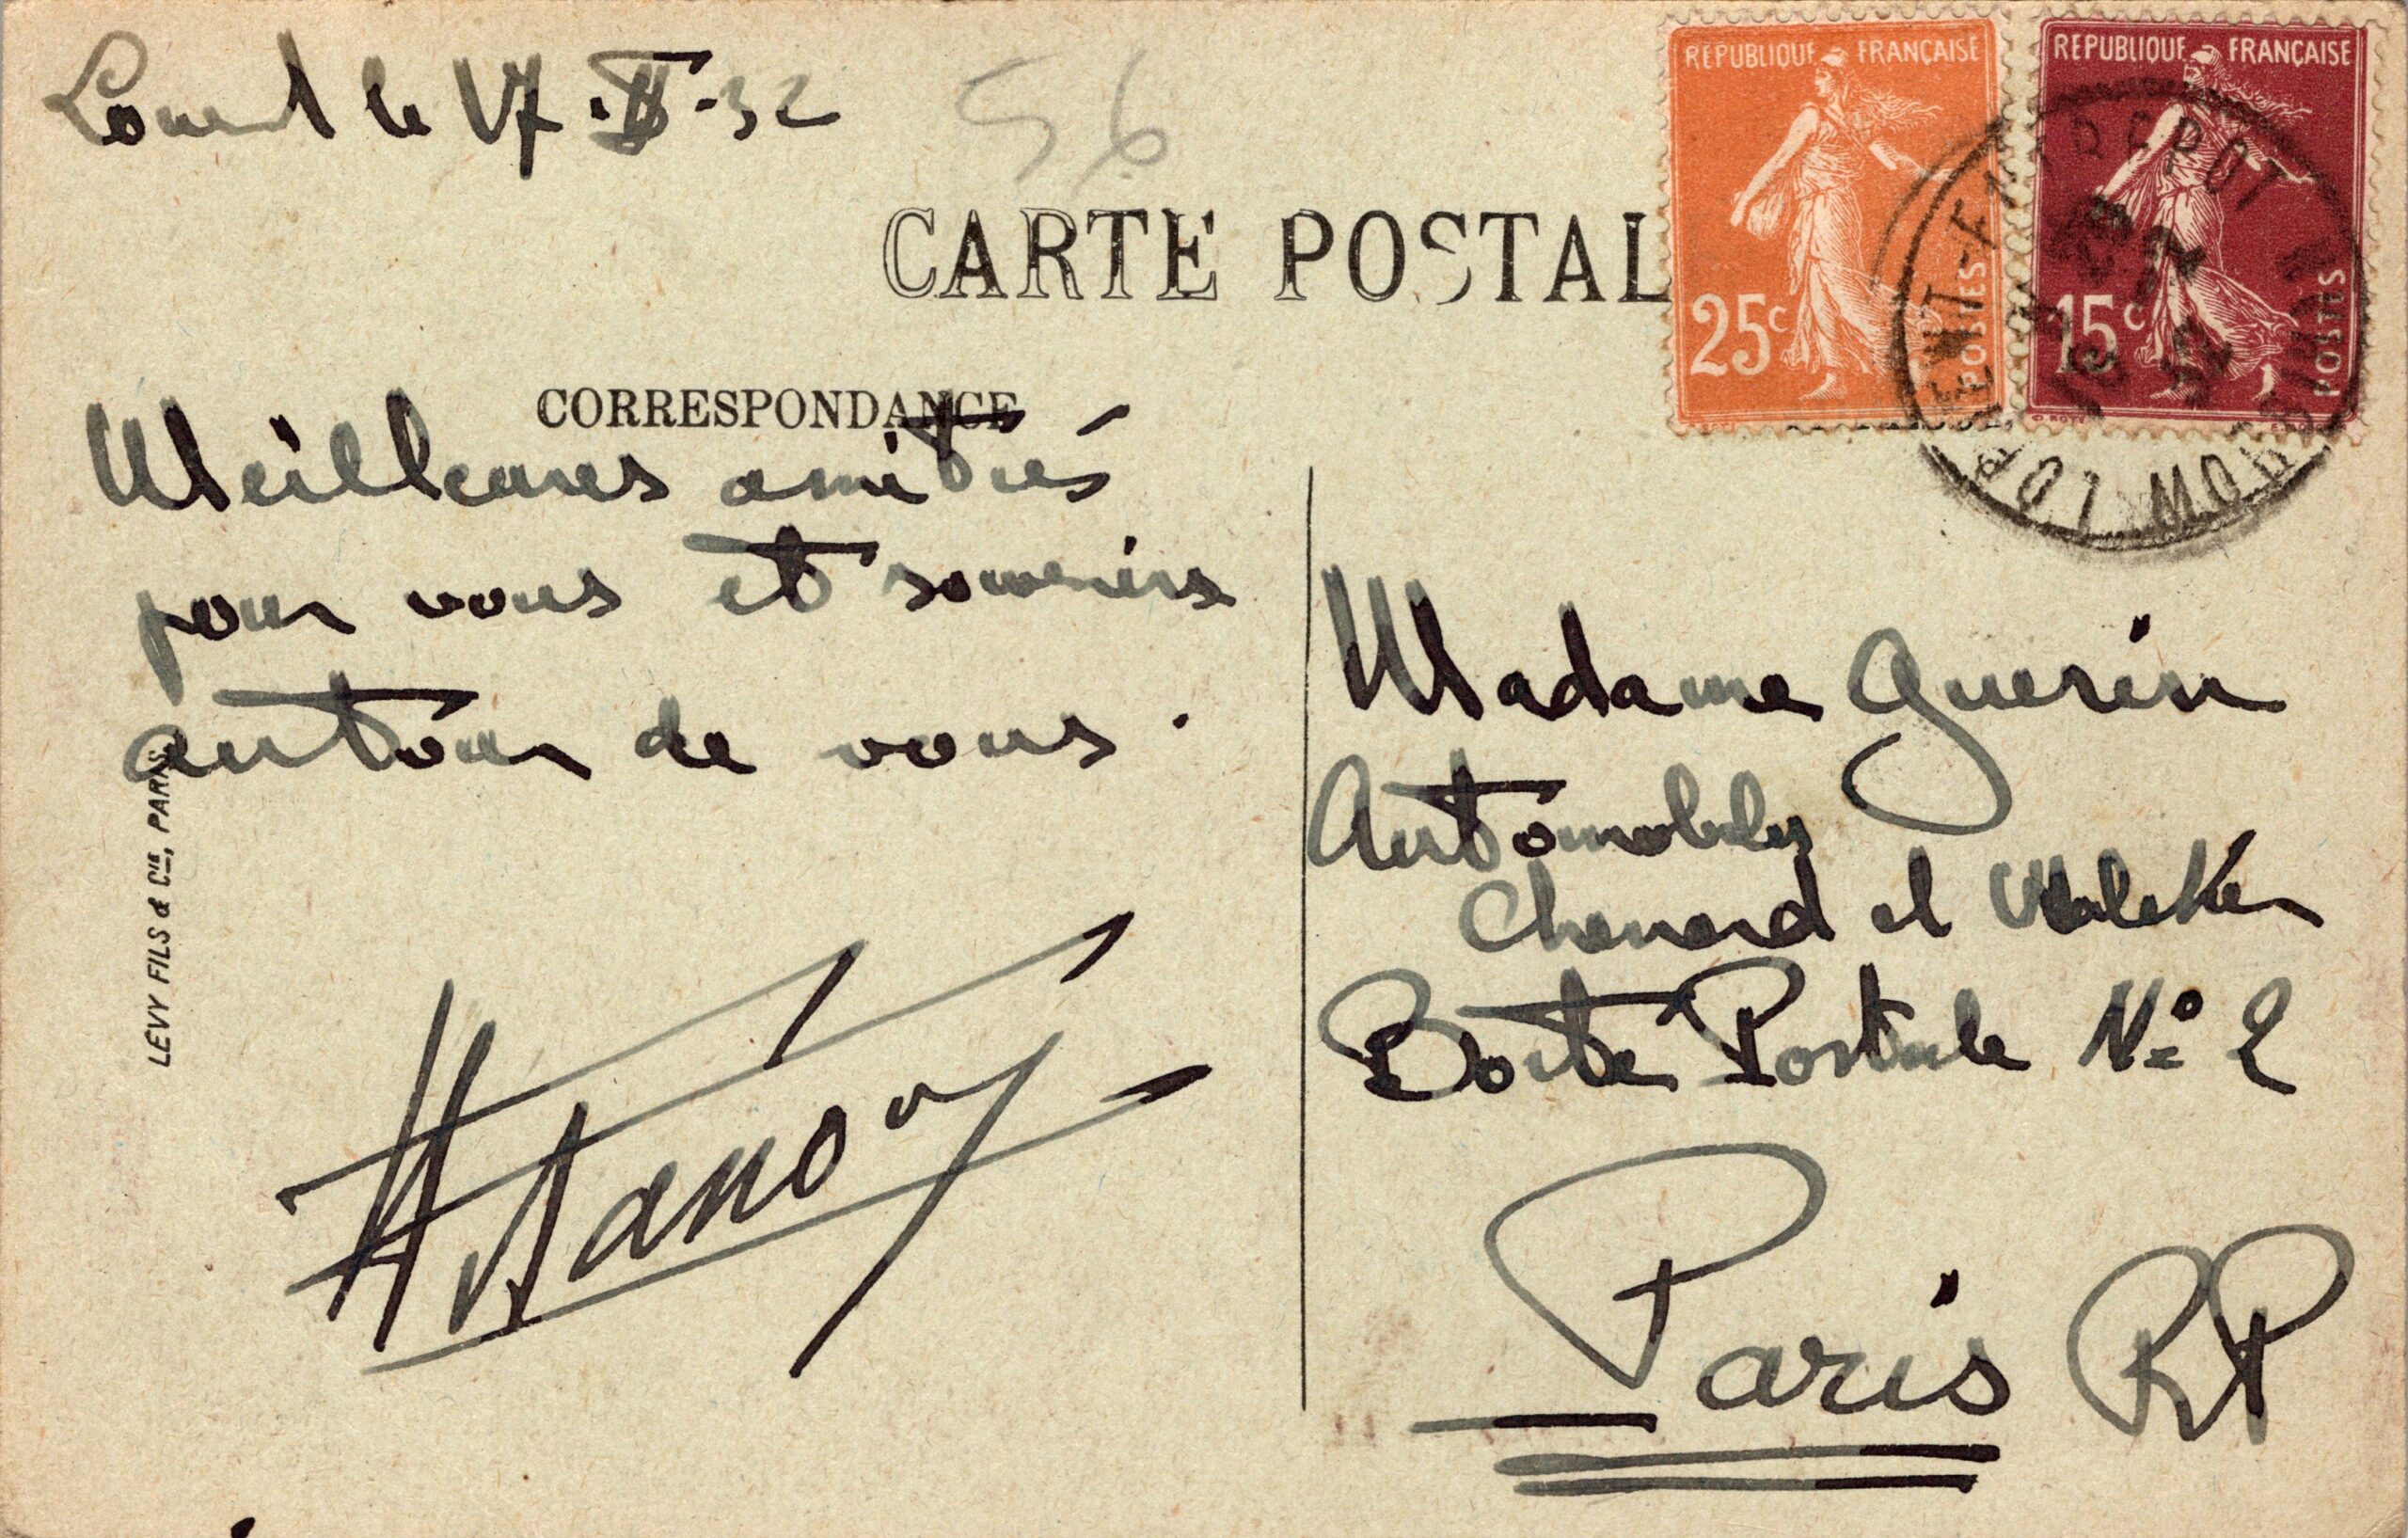 Lorient le 17.II.32
56
CARTE POSTAL
CORRESPONDANCE
Meilleures amitiés
pour vous et souvenirs
autour de vous.
LEVY FILS & Cie, PARIS
REPUBLIQUE FRANÇAISE
25c
POSTES
REPUBLIQUE FRANÇAISE
15c
POSTES
LORIENT-ENTREPOT
MORBIHAN
Madame Guerin
Automobiles
Chenard et Walcker
Boite Postale No 2
Paris RP